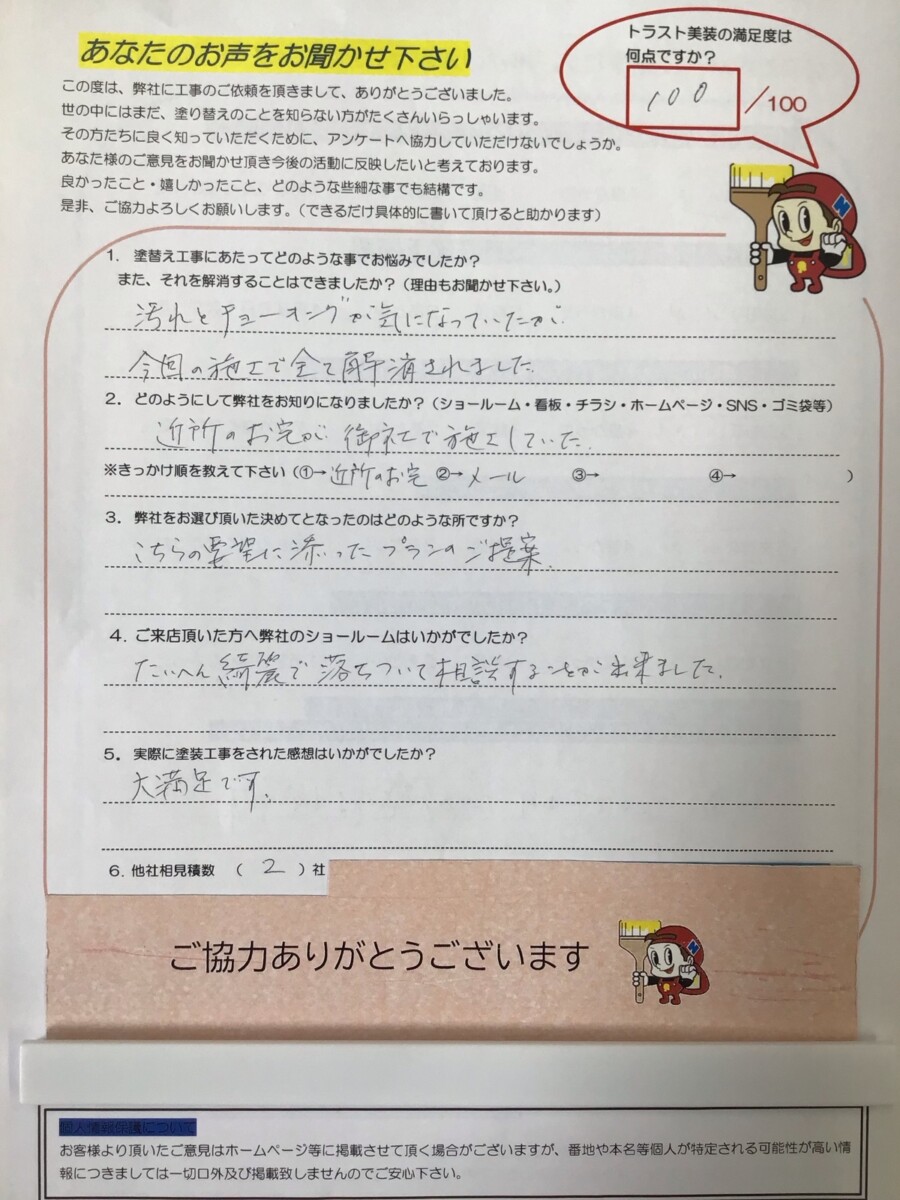 あなたのお声をお聞かせ下さい
トラスト美装の満足度は
何点ですか？
100 /100
この度は、弊社に工事のご依頼を頂きまして、ありがとうございました。
世の中にはまだ、塗り替えのことを知らない方がたくさんいらっしゃいます。
その方たちに良く知っていただくために、アンケートへ協力していただけないでしょうか。
あなた様のご意見をお聞かせ頂き今後の活動に反映したいと考えております。
良かったこと・嬉しかったこと、どのような些細な事でも結構です。
是非、ご協力よろしくお願いします。（できるだけ具体的に書いて頂けると助かります）
1．塗替え工事にあたってどのような事でお悩みでしたか？
また、それを解消することはできましたか？（理由もお聞かせ下さい。）
汚れとチョーキングが気になっていたが、
今回の施工で全て解消されました。
2．どのようにして弊社をお知りになりましたか？（ショールーム・看板・チラシ・ホームページ・SNS・ゴミ袋等）
近所のお宅が御社で施工していた。
※きっかけ順を教えて下さい（①→近所のお宅 ②→メール ③→ ④→ ）
3．弊社をお選び頂いた決めてとなったのはどのような所ですか？
こちらの要望に添ったプランのご提案。
4．ご来店頂いた方へ弊社のショールームはいかがでしたか？
たいへん綺麗で落ちついて相談することが出来ました。
5．実際に塗装工事をされた感想はいかがでしたか？
大満足です。
6．他社相見積数 （ 2 ）社
ご協力ありがとうございます
個人情報保護について
お客様より頂いたご意見はホームページ等に掲載させて頂く場合がございますが、番地や本名等個人が特定される可能性が高い情
報につきましては一切口外及び掲載致しませんのでご安心下さい。